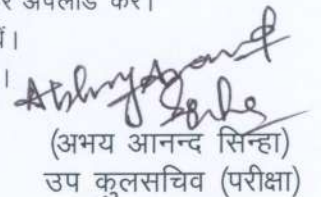 र अपलोड करें।
ं।
।
(अभय आनन्द सिन्हा)
उप कुलसचिव (परीक्षा)